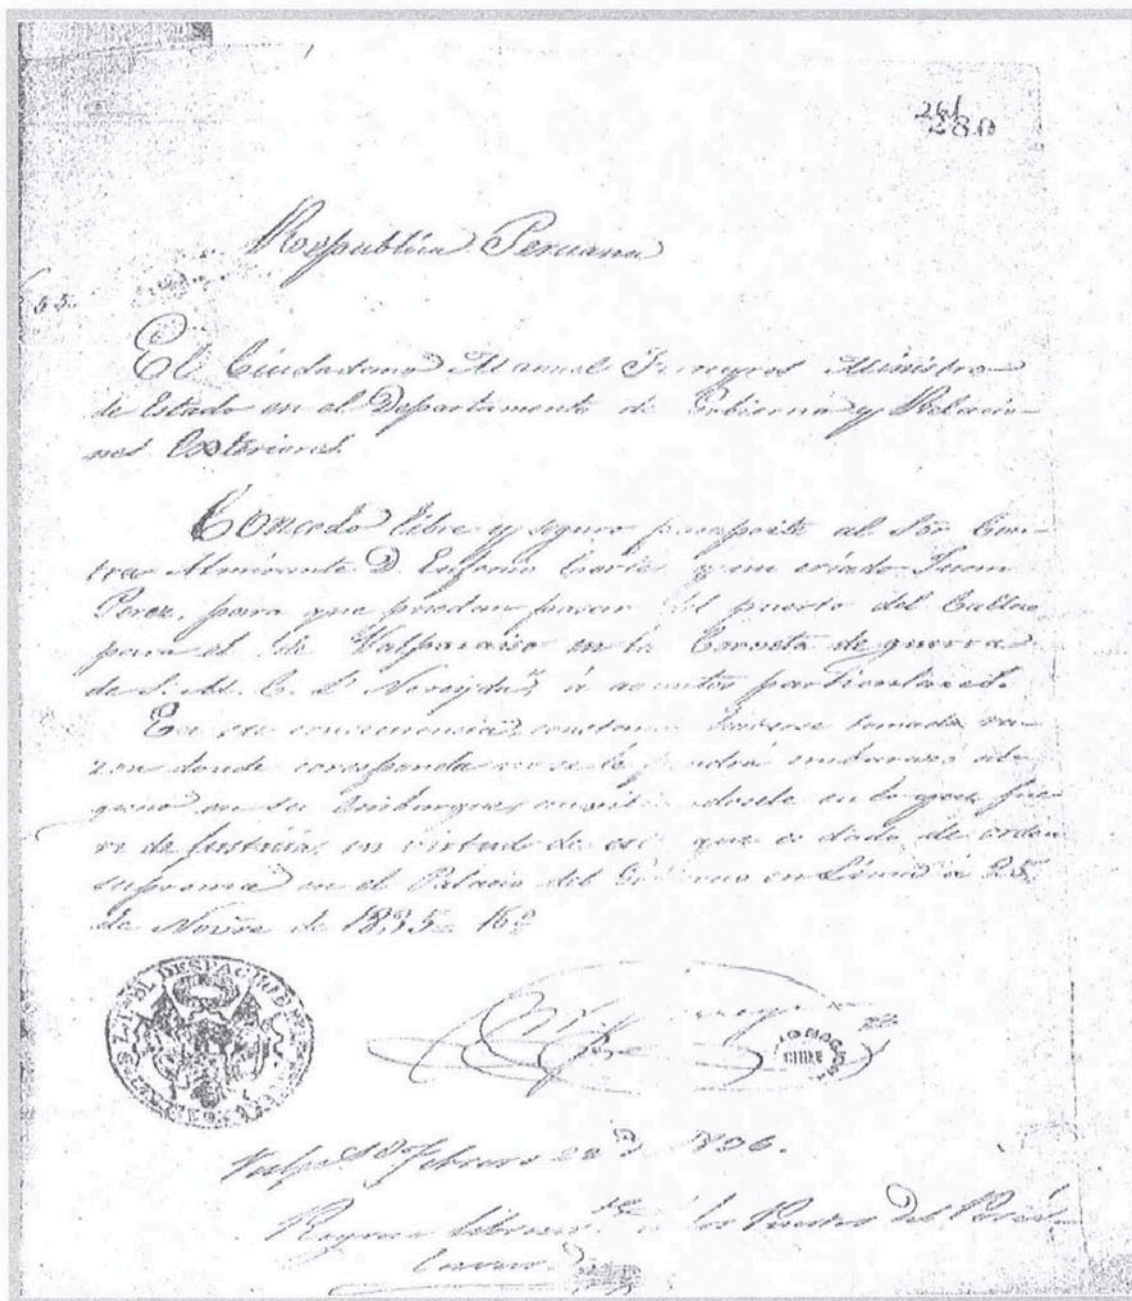 280
Respública Peruana
El Ciudadano Manuel Ferreyros Ministro
de Estado en el Departamento de Gobierno y Relacio-
nes Exteriores.
Concedo libre y seguro pasaporte al Sõr Con-
tra Almirante D. Eugenio Cortes y su criado Juan
Perez, para que puedan pasar del puerto del Callao
para el de Valparaiso en la Corveta de guerra
de S. M. B. á asuntos particulares.
En su consecuencia, constando haverse tomado ra-
zon donde corresponda no se le pondrá embarazo al-
guno en su embarque, en lo que fue-
re de justicia, en virtud de que es dado de orden
suprema en el Palacio del Gobierno en Lima á 25
de Novre de 1835 = 16º
DESPACHO
CHILE
Valpso Febrero 1836.
Regresa á los Puertos del Perú